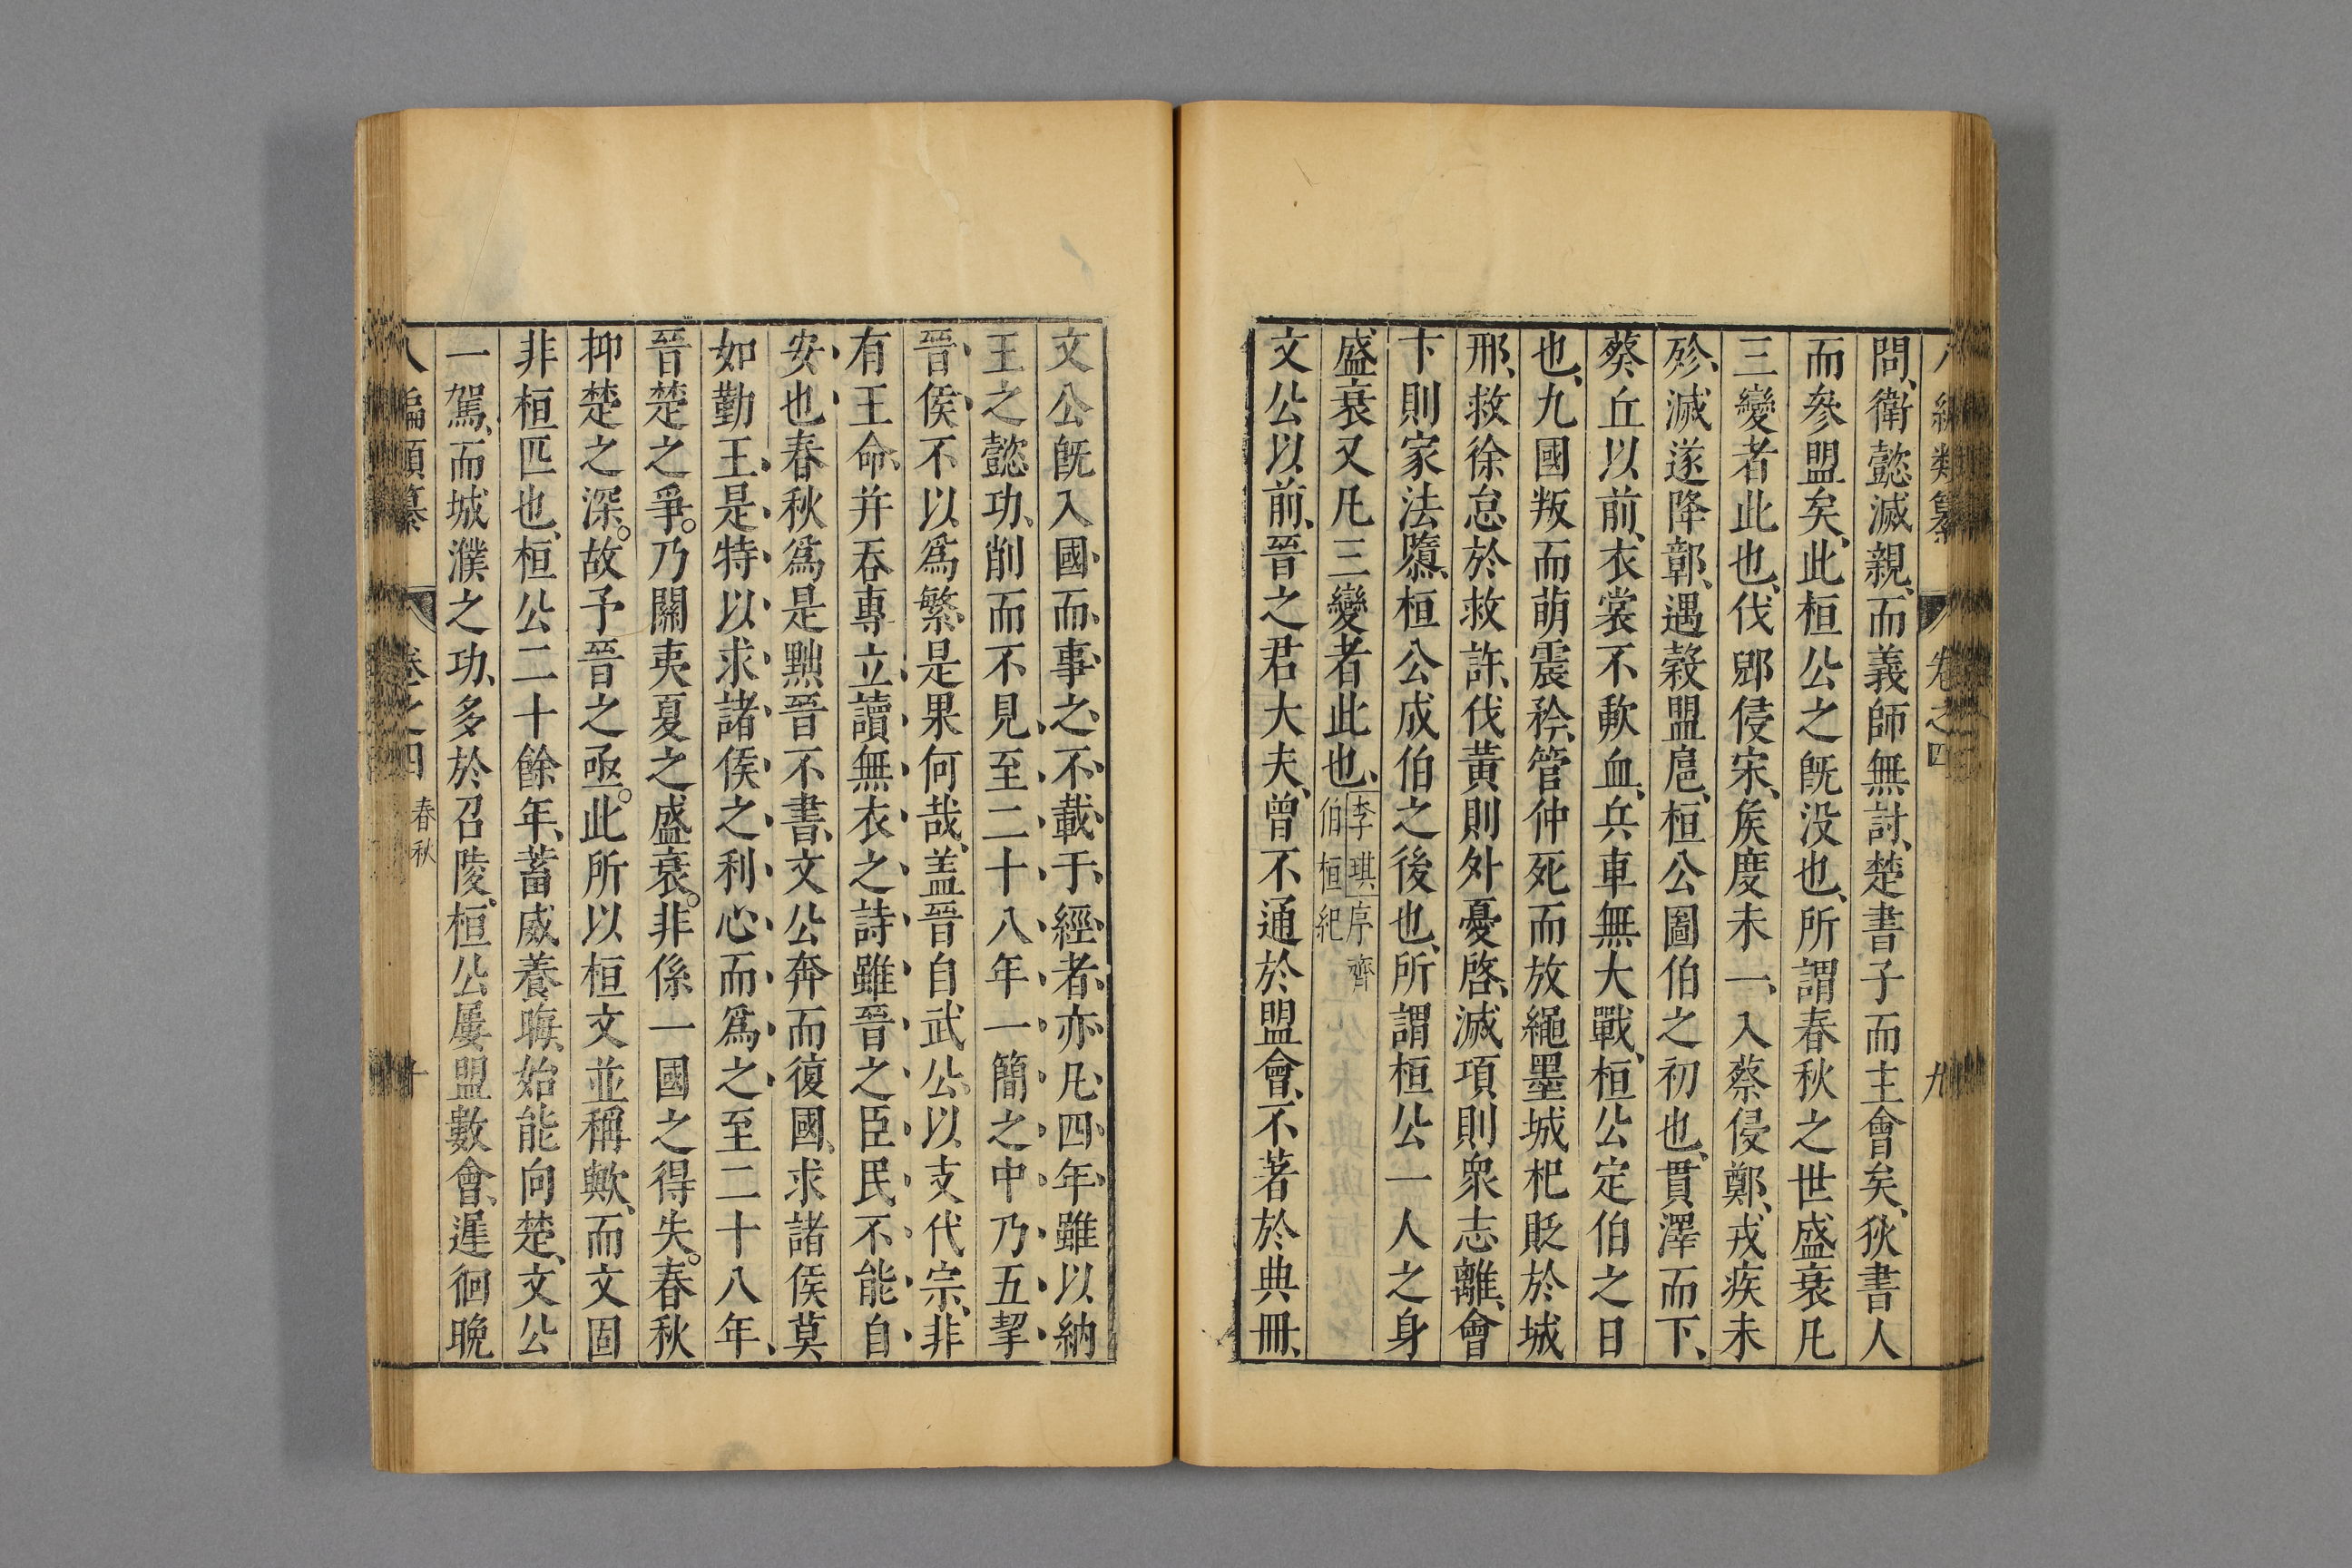 八編類纂 卷之四 九
問、衛懿滅親、而義師無討、楚書子而主會矣、狄書人
而參盟矣、此桓公之旣没也、所謂春秋之世盛衰凡
三變者此也、伐郳侵宋、矦度未一、入蔡侵鄭、戎疾未
殄、滅遂降鄣、遇榖盟扈、桓公圖伯之初也、貫澤而下、
蔡丘以前、衣裳不歃血、兵車無大戰、桓公定伯之日
也、九國叛而萌震矜、管仲死而放繩墨城杞貶於城
邢、救徐怠於救許、伐黃則外憂啓、滅項則衆志離、會
卞則家法隳、桓公成伯之後也、所謂桓公一人之身
盛衰又凡三變者此也、李琪序齊伯桓紀
文公以前、晉之君大夫、曾不通於盟會、不著於典冊、
文公旣入國、而事之、不載于經者、亦凡四年、雖以納
王之懿功、削而不見、至二十八年一簡之中乃五挈
晉侯、不以爲繁、是果何哉、盖晉自武公以支代宗、非
有王命、并吞專立、讀無衣之詩、雖晉之臣民、不能自
安也、春秋爲是黜晉不書、文公奔而復國、求諸侯莫
如勤王、是特以求諸侯之利心而爲之、至二十八年、
晉楚之爭。乃關夷夏之盛衰。非係一國之得失。春秋
抑楚之深。故予晉之亟。此所以桓文並稱歟、而文固
非桓匹也、桓公二十餘年、蓄威養晦、始能向楚、文公
一駕、而城濮之功、多於召陵、桓公屢盟數會、遲徊晚
八編類纂 卷之四 春秋 十